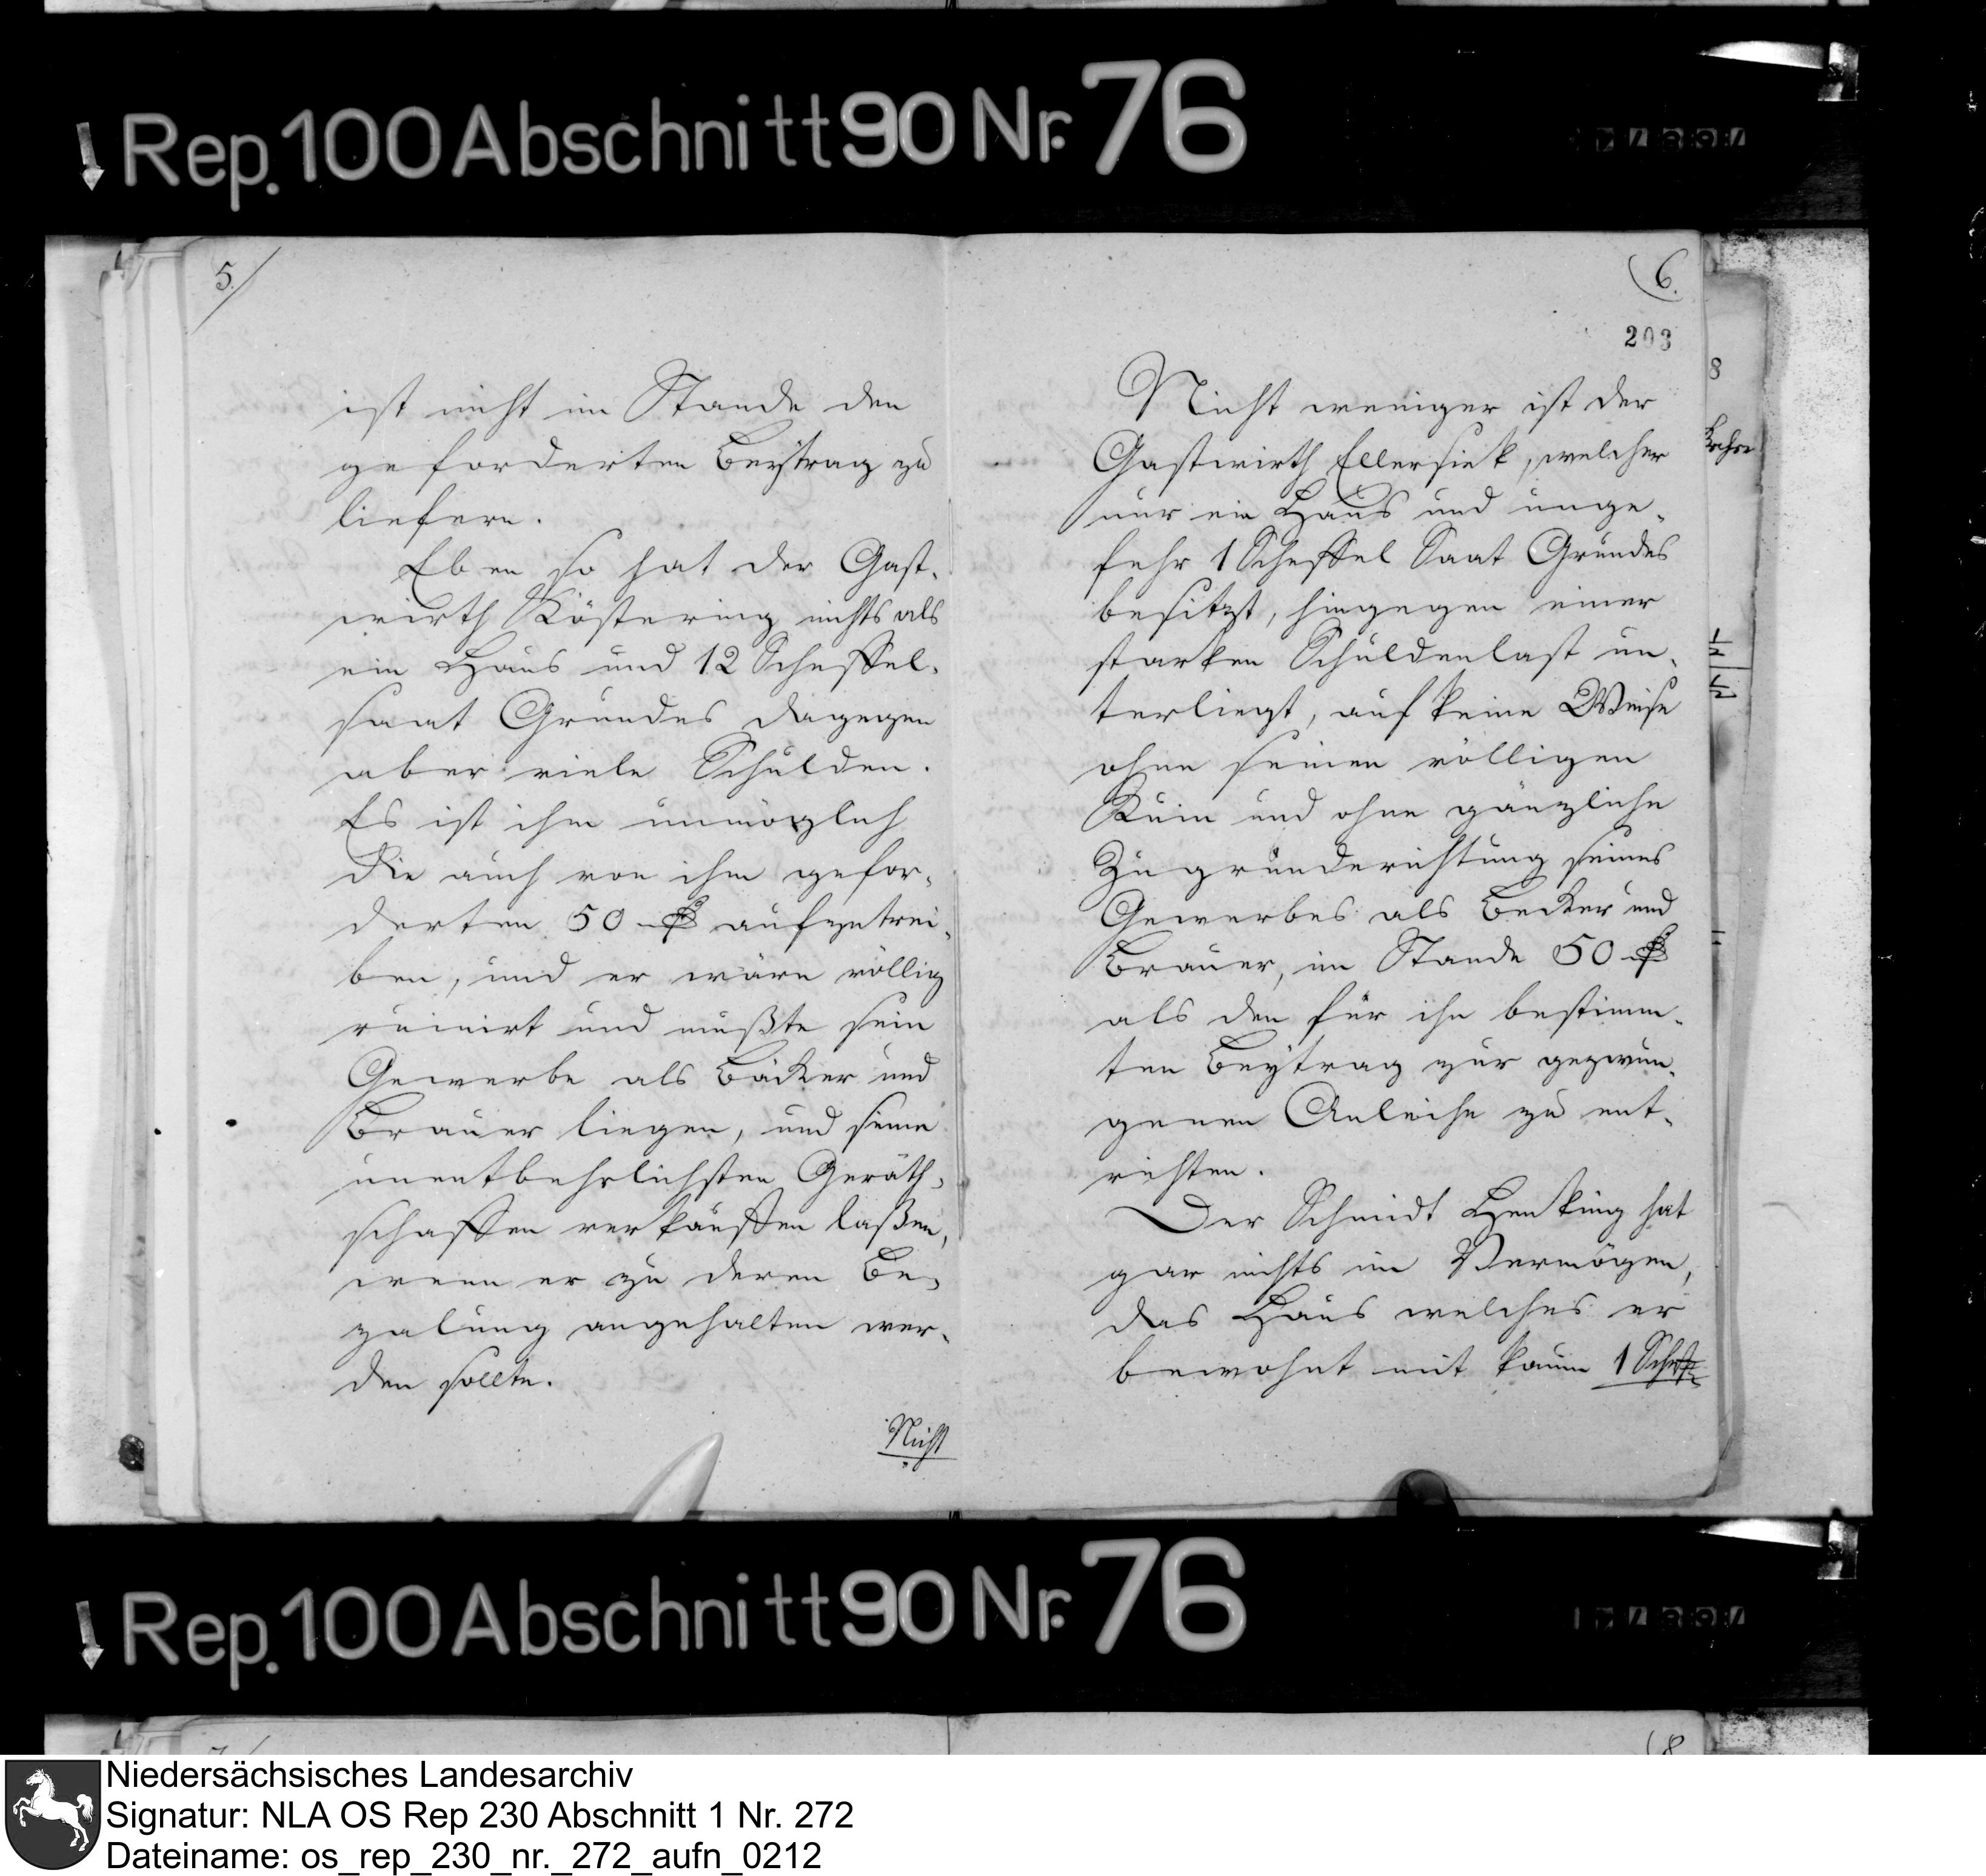 Rep. 100 Abschnitt 90 Nr. 76
5.
ist nicht im Stande den
geforderten Beÿtrag zu
liefern.
Eben so hat der Gast-
wirth Köstering nichts als
ein Haus und 12 Scheffel-
saat Grundes dagegen
aber viele Schulden.
Es ist ihm unmöglich
die auch von ihm gefor-
derten 50 rthlr aufzutrei-
ben, und er wäre völlig
ruinirt und müßte sein
Gewerbe als Bäcker und
Brauer liegen, und seine
unentbehrlichsten Geräth-
schaften verkauffen laßen,
wenn er zu deren Be-
zalung angehalten wer-
den sollte.
Nicht
6.
203
Nicht weniger ist der
Gastwirth Ellersiek, welcher
nur ein Haus und unge-
fehr 1 Scheffel Saat Grundes
besitzt, hingegen einer
starken Schuldenlast un-
terliegt, auf keine Weise
ohne seinen völligen
Ruin und ohne gänzliche
Zugrunderichtung seines
Gewerbes als Becker und
Brauer, im Stande 50 rthlr
als den für ihn bestimm-
ten Beytrag zur gezwun-
genen Anleihe zu ent-
richten.
Der Schmidt Henking hat
gar nichts im Vermögen,
das Haus welches er
bewohnt mit kaum 1 Scheff
8
Rep. 100 Abschnitt 90 Nr. 76
8
Niedersächsisches Landesarchiv
Signatur: NLA OS Rep 230 Abschnitt 1 Nr. 272
Dateiname: os_rep_230_nr._272_aufn_0212